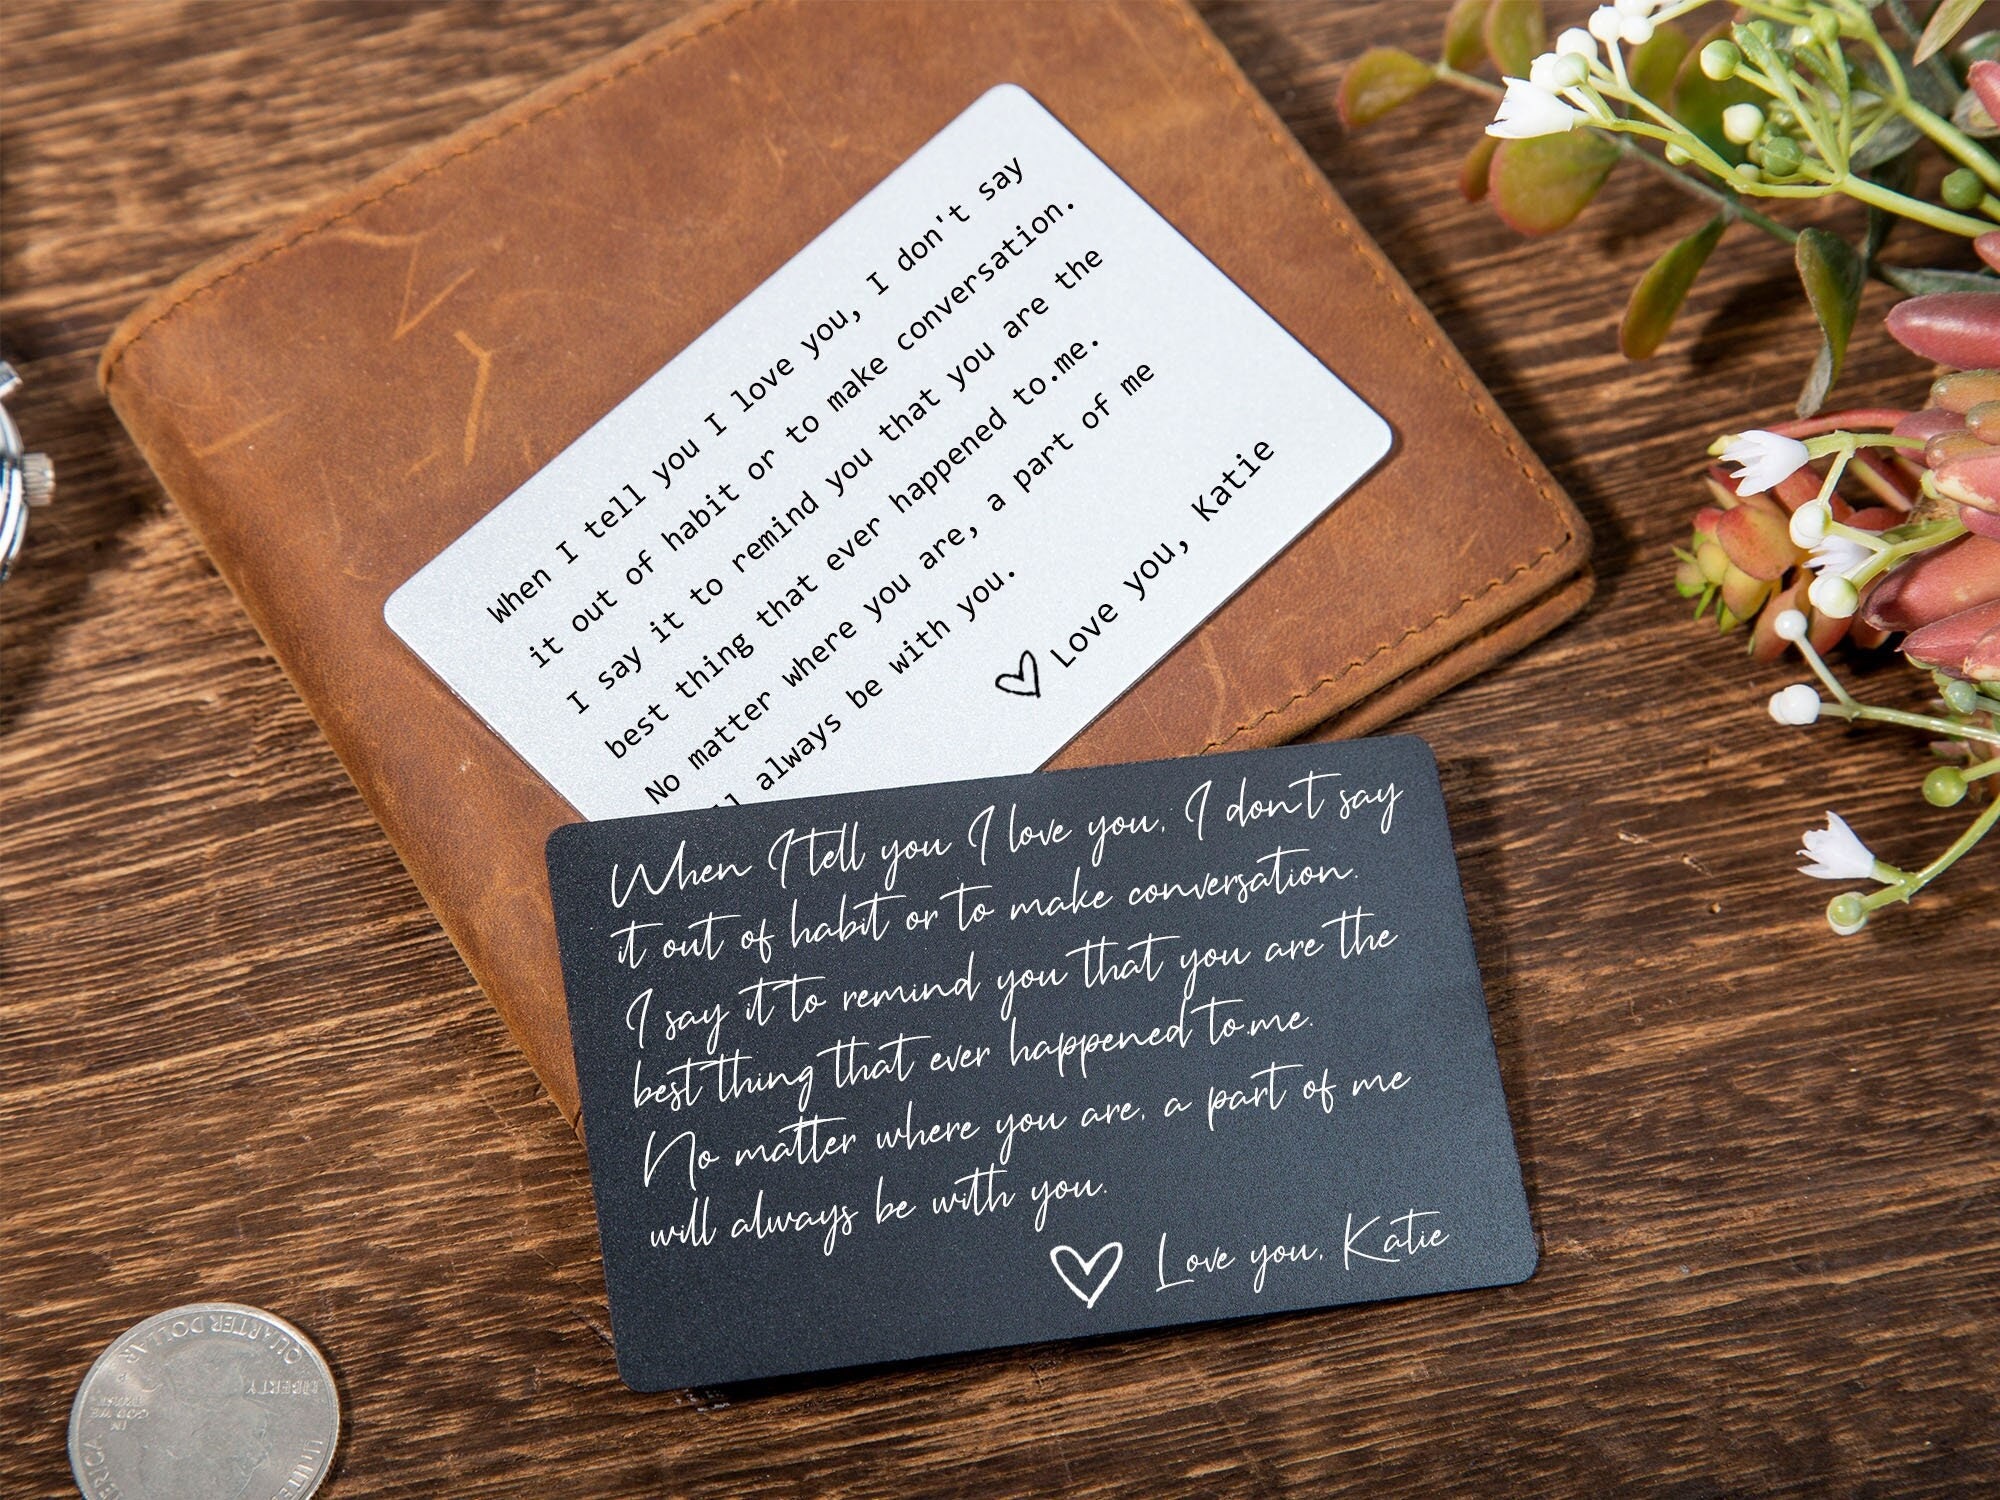 When I tell you I love you, I don't say
it out of habit or to make conversation.
I say it to remind you that you are the
best thing that ever happened to.me.
No matter where you are, a part of me
always be with you.
Love you, Katie
When I tell you I love you, I don't say
it out of habit or to make conversation.
I say it to remind you that you are the
best thing that ever happened to.me.
No matter where you are, a part of me
will always be with you.
Love you, Katie
QUARTER DOLLAR
LIBERTY
IN
GOD WE
TRUST